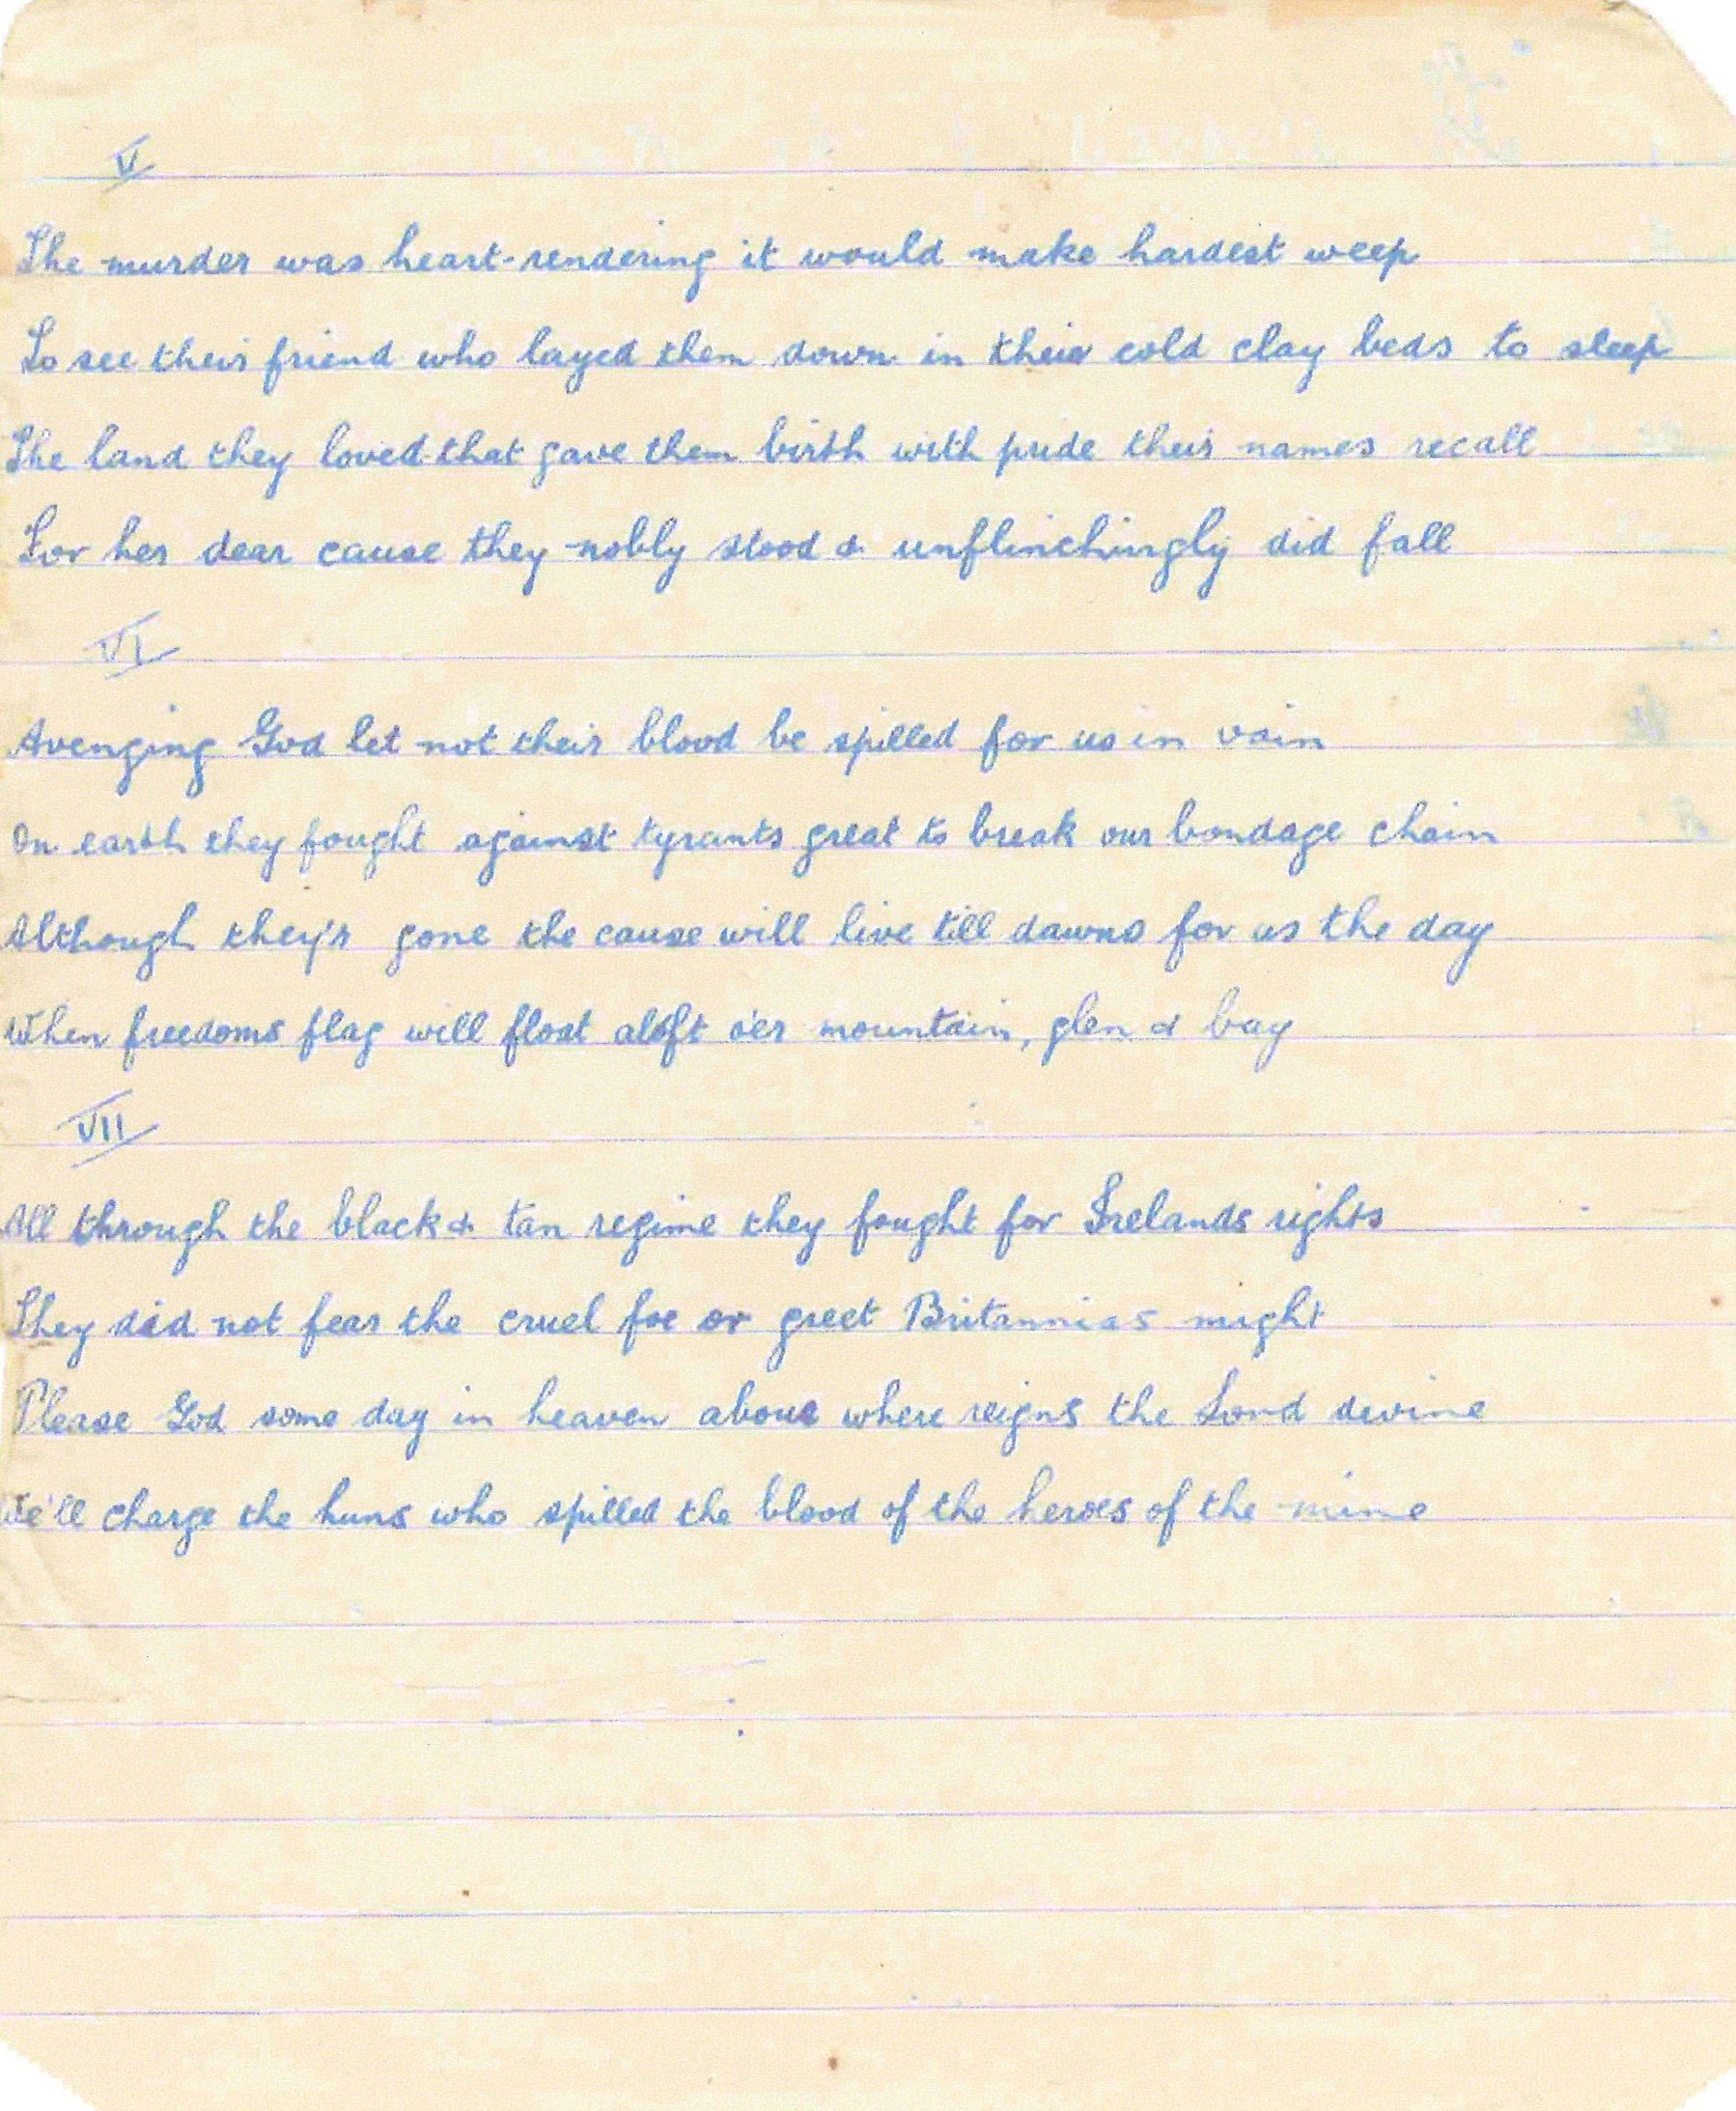 V
The murder was heart-rendering it would make hardest weep
To see their friend who layed them down in their cold clay beds to sleep
The land they loved that gave them birth with pride their names recall
For her dear cause they nobly stood & unflinchingly did fall
VI
Avenging God let not their blood be spilled for us in vain
On earth they fought against tyrants great to break our bondage chain
Although they'r gone the cause will live till dawns for us the day
When freedoms flag will float aloft o'er mountain, glen & bay
VII
All through the black & tan regime they fought for Irelands rights
They did not fear the cruel foe or greet Britannias might
Please God some day in heaven above where reigns the Lord devine
We'll charge the huns who spilled the blood of the heroes of the mine